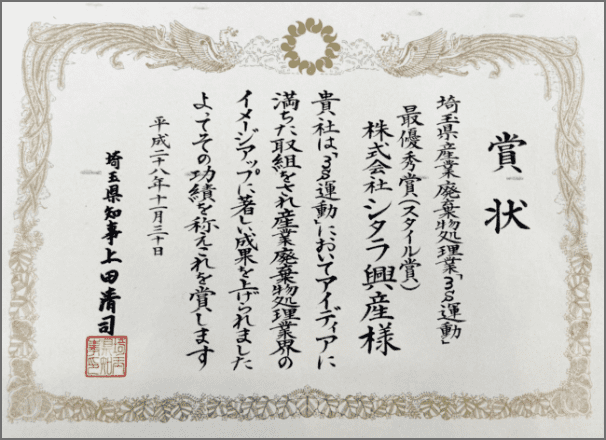 賞状
埼玉県産業廃棄物処理業「3S運動」
最優秀賞(スタイル賞)
株式会社シタラ興産様
貴社は、「3S運動」においてアイディアに
満ちた取組をされ産業廃棄物処理業界の
イメージアップに著しい成果を上げられました
よってその功績を称えこれを賞します
平成二十八年十一月三十日
埼玉県知事上田清司